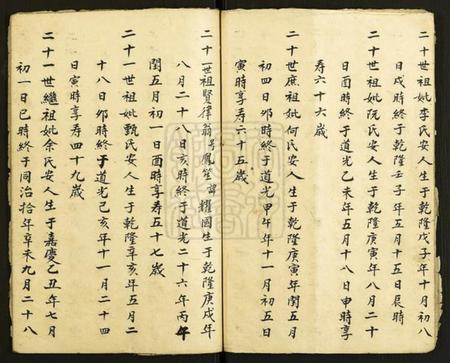 二十世祖妣李氏安人生于乾隆戊子年十月初八
日戌時終于乾隆壬子年五月十五日辰時
二十世祖妣阮氏安人生于乾隆庚寅年八月二十
日酉時終于道光乙未年五月十八日申時享
壽六十六歲
二十世庶祖妣何氏安人生于乾隆庚寅年閏五月
初四日卯時終道光甲午年十一月初五日
寅時享壽六十五歲
二十一世祖賢律翁号鳳笙諱耀國生于乾隆庚戌年
八月二十八日亥時終于道光二十六年丙午
閏五月初一日酉時享寿五十七歲
二十一世祖妣甄氏安人生于乾隆辛亥年五月二
十八日卯時終于道光己亥年十一月二十四
日寅時享寿四十九歲
二十一世繼祖妣余氏安人生于嘉慶乙丑年七月
初一日巳時終于同治拾年辛未九月二十八